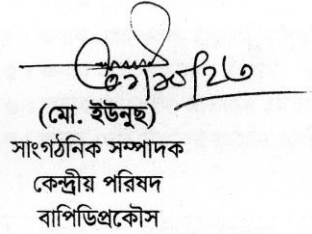 (মো. ইউনুছ)
সাংগঠনিক সম্পাদক
কেন্দ্রীয় পরিষদ
বাপিডিপ্রকৌস